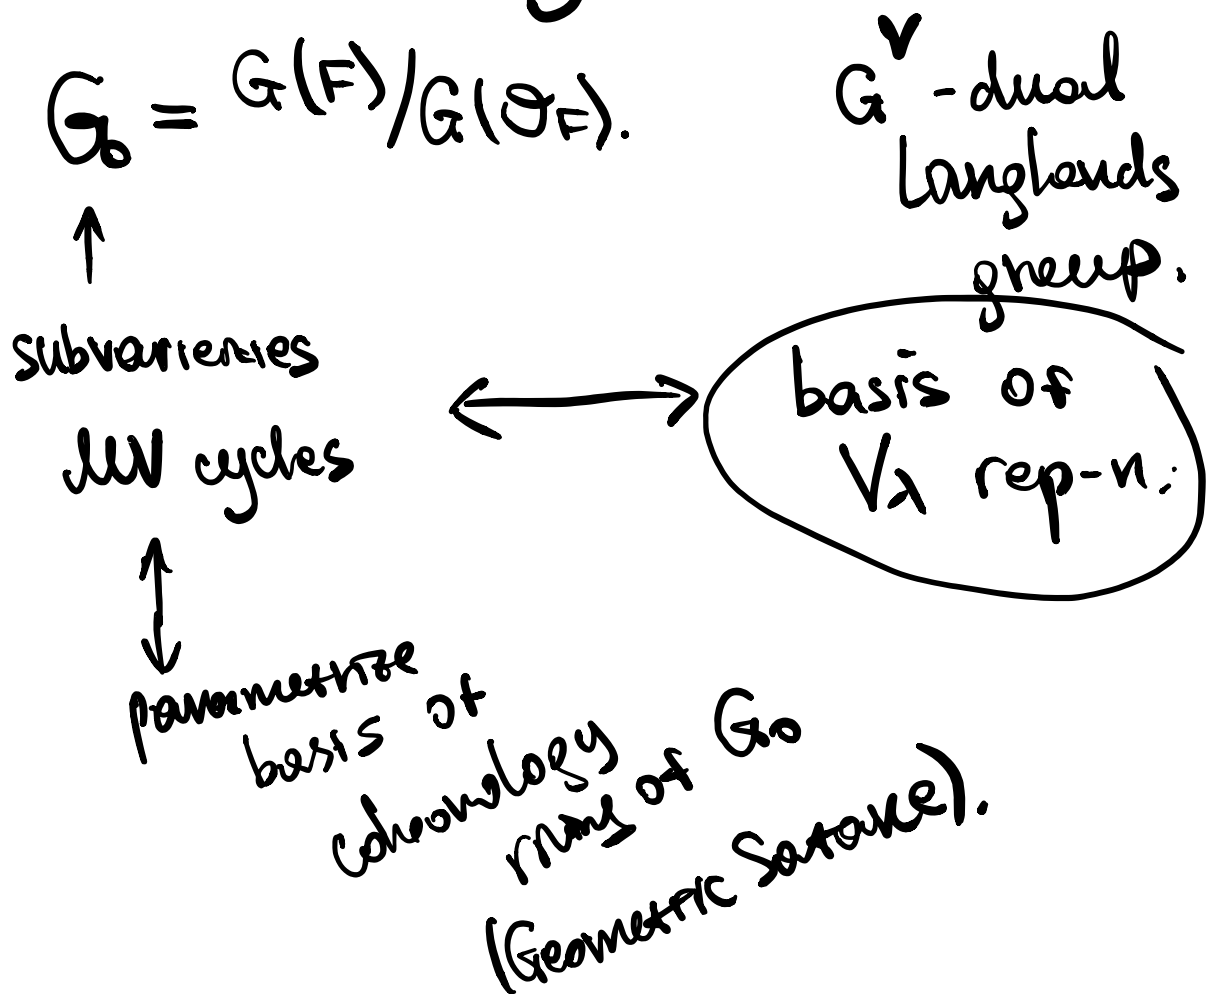 G₀ = G(F)/G(O_F).
G^∨ - dual
Langlands
group.
subvarieties
MV cycles
basis of
V_λ rep-n.
parametrize
basis of
cohomology
ring of G₀
(Geometric Satake).